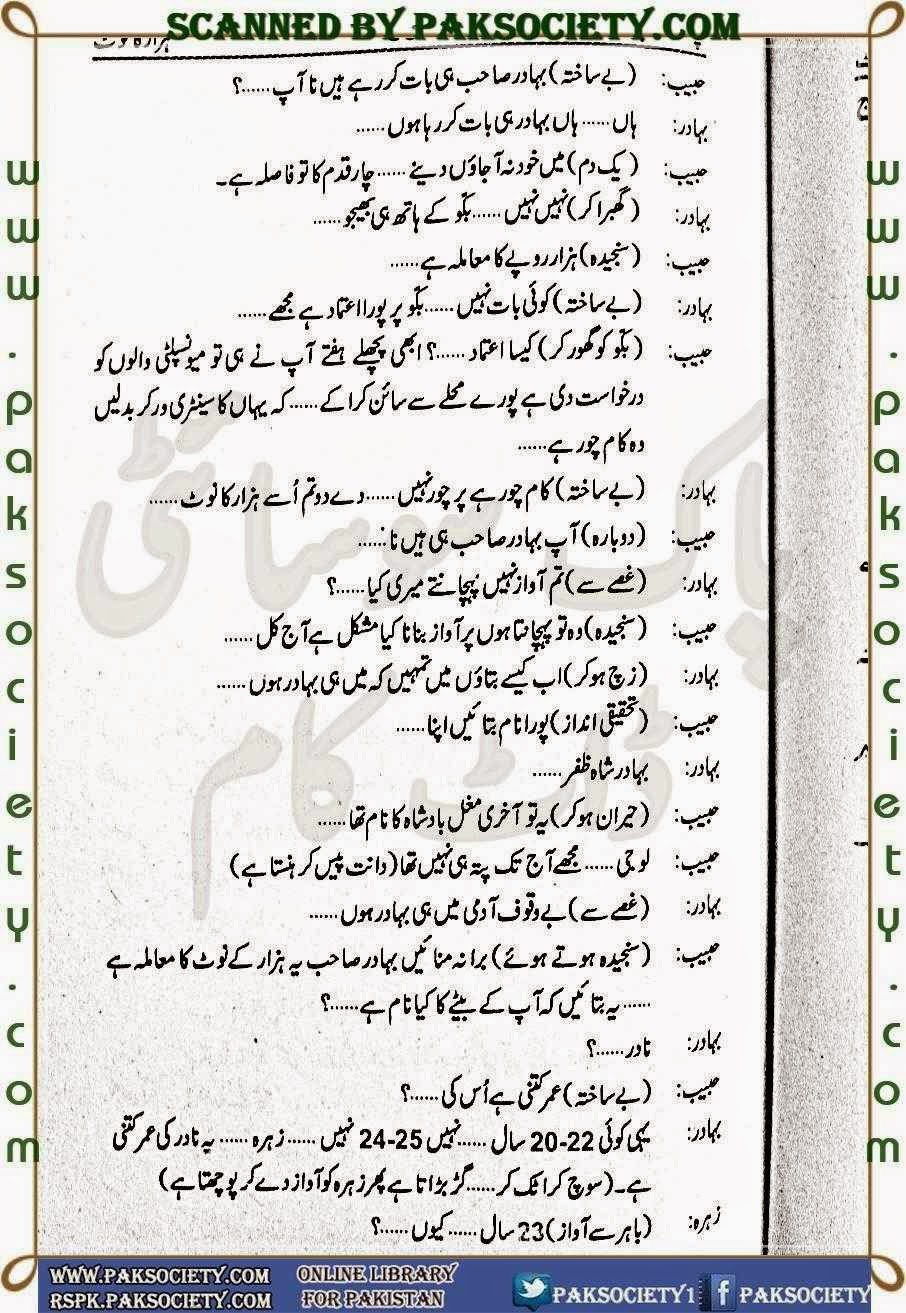 SCANNED BY PAKSOCIETY.COM
حبیب: (بے ساختہ) بہادر صاحب ہی بات کر رہے ہیں نا آپ......؟
بہادر: ہاں...... ہاں بہادر ہی بات کر رہا ہوں......
حبیب: (یک دم) میں خود نہ آجاؤں دینے...... چار قدم کا تو فاصلہ ہے۔
بہادر: (گھبرا کر) نہیں نہیں...... بگو کے ہاتھ ہی بھیجو......
حبیب: (سنجیدہ) ہزار روپے کا معاملہ ہے......
بہادر: (بے ساختہ) کوئی بات نہیں...... بگو پر پورا اعتماد ہے مجھے......
حبیب: (بگو کو گھور کر) کیسا اعتماد......؟ ابھی پچھلے ہفتے آپ نے ہی تو میونسپلٹی والوں کو
درخواست دی ہے پورے محلے سے سائن کرا کے...... کہ یہاں کا سینٹری ورکر بدلیں
وہ کام چور ہے......
بہادر: (بے ساختہ) کام چور ہے پر چور نہیں...... دے دو تم اُسے ہزار کا نوٹ......
حبیب: (دوبارہ) آپ بہادر صاحب ہی ہیں نا......
بہادر: (غصے سے) تم آواز نہیں پہچانتے میری کیا......؟
حبیب: (سنجیدہ) وہ تو پہچانتا ہوں پر آواز بنانا کیا مشکل ہے آج کل......
بہادر: (زچ ہو کر) اب کیسے بتاؤں میں تمہیں کہ میں ہی بہادر ہوں......
حبیب: (تحقیقی انداز) پورا نام بتائیں اپنا......
بہادر: بہادر شاہ ظفر......
حبیب: (حیران ہو کر) یہ تو آخری مغل بادشاہ کا نام تھا......
حبیب: لو جی...... مجھے آج تک پتہ ہی نہیں تھا (دانت پیس کر ہنستا ہے)
بہادر: (غصے سے) بے وقوف آدمی میں ہی بہادر ہوں......
حبیب: (سنجیدہ ہوتے ہوئے) برا نہ منائیں بہادر صاحب یہ ہزار کے نوٹ کا معاملہ ہے
...... یہ بتائیں کہ آپ کے بیٹے کا کیا نام ہے......؟
بہادر: نادر......؟
حبیب: (بے ساختہ) عمر کتنی ہے اُس کی......؟
بہادر: یہی کوئی 22-20 سال...... نہیں 25-24 نہیں...... زہرہ...... یہ نادر کی عمر کتنی
ہے۔ (سوچ کر اٹک کر...... گڑبڑاتا ہے پھر زہرہ کو آواز دے کر پوچھتا ہے)
زہرہ: (باہر سے آواز) 23 سال...... کیوں......؟
پاک سوسائٹی
ڈاٹ کام
www.paksociety.com
www.paksociety.com
WWW.PAKSOCIETY.COM
RSPK.PAKSOCIETY.COM
ONLINE LIBRARY
FOR PAKISTAN
PAKSOCIETY1
PAKSOCIETY